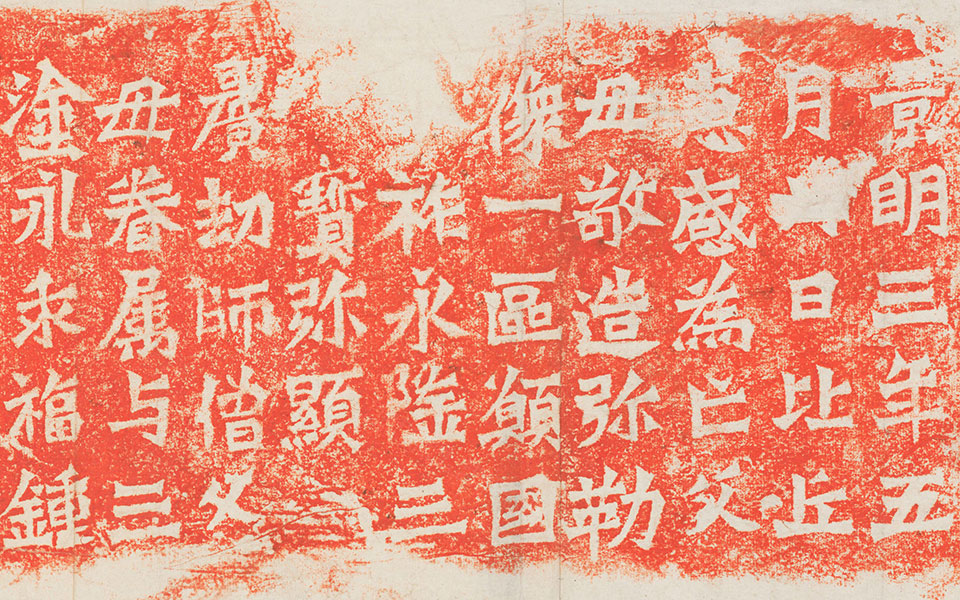 景明三年五
月日比丘
惠感為亡父
母敬造弥勒
像一區願國
祚永隆三
寶弥顯
曠劫師僧父
母眷属与三
塗永乖福鍾